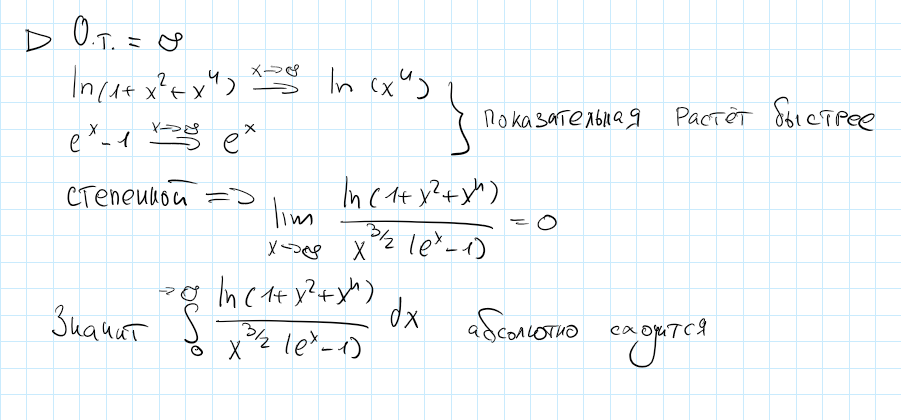 ▷ О.т. = ∞
ln(1+x²+x⁴) x→∞ ⇒ ln(x⁴)
eˣ-1 x→∞ ⇒ eˣ } показательная растёт быстрее
степенной => lim x→∞ ln(1+x²+x⁴) / x^(3/2) (eˣ-1) = 0
Значит ∫₀^(→∞) ln(1+x²+x⁴) / x^(3/2) (eˣ-1) dx абсолютно сходится